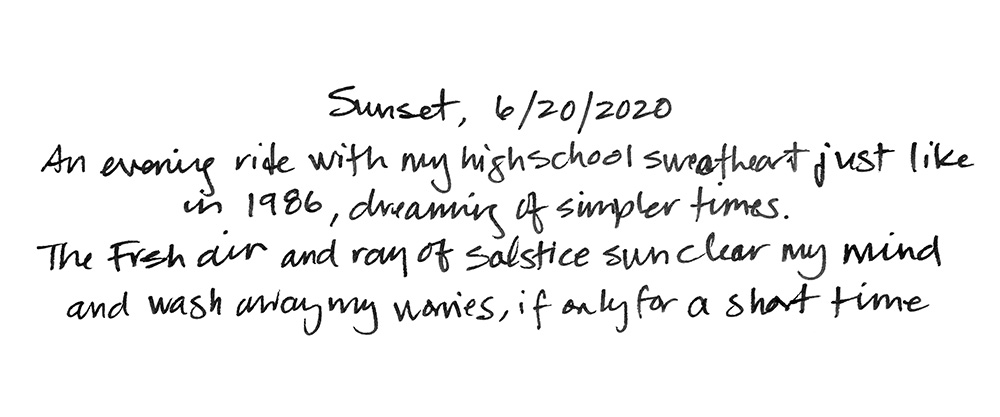 Sunset, 6/20/2020
An evening ride with my highschool sweetheart just like
in 1986, dreaming of simpler times.
The Fresh air and ray of solstice sun clear my mind
and wash away my worries, if only for a short time